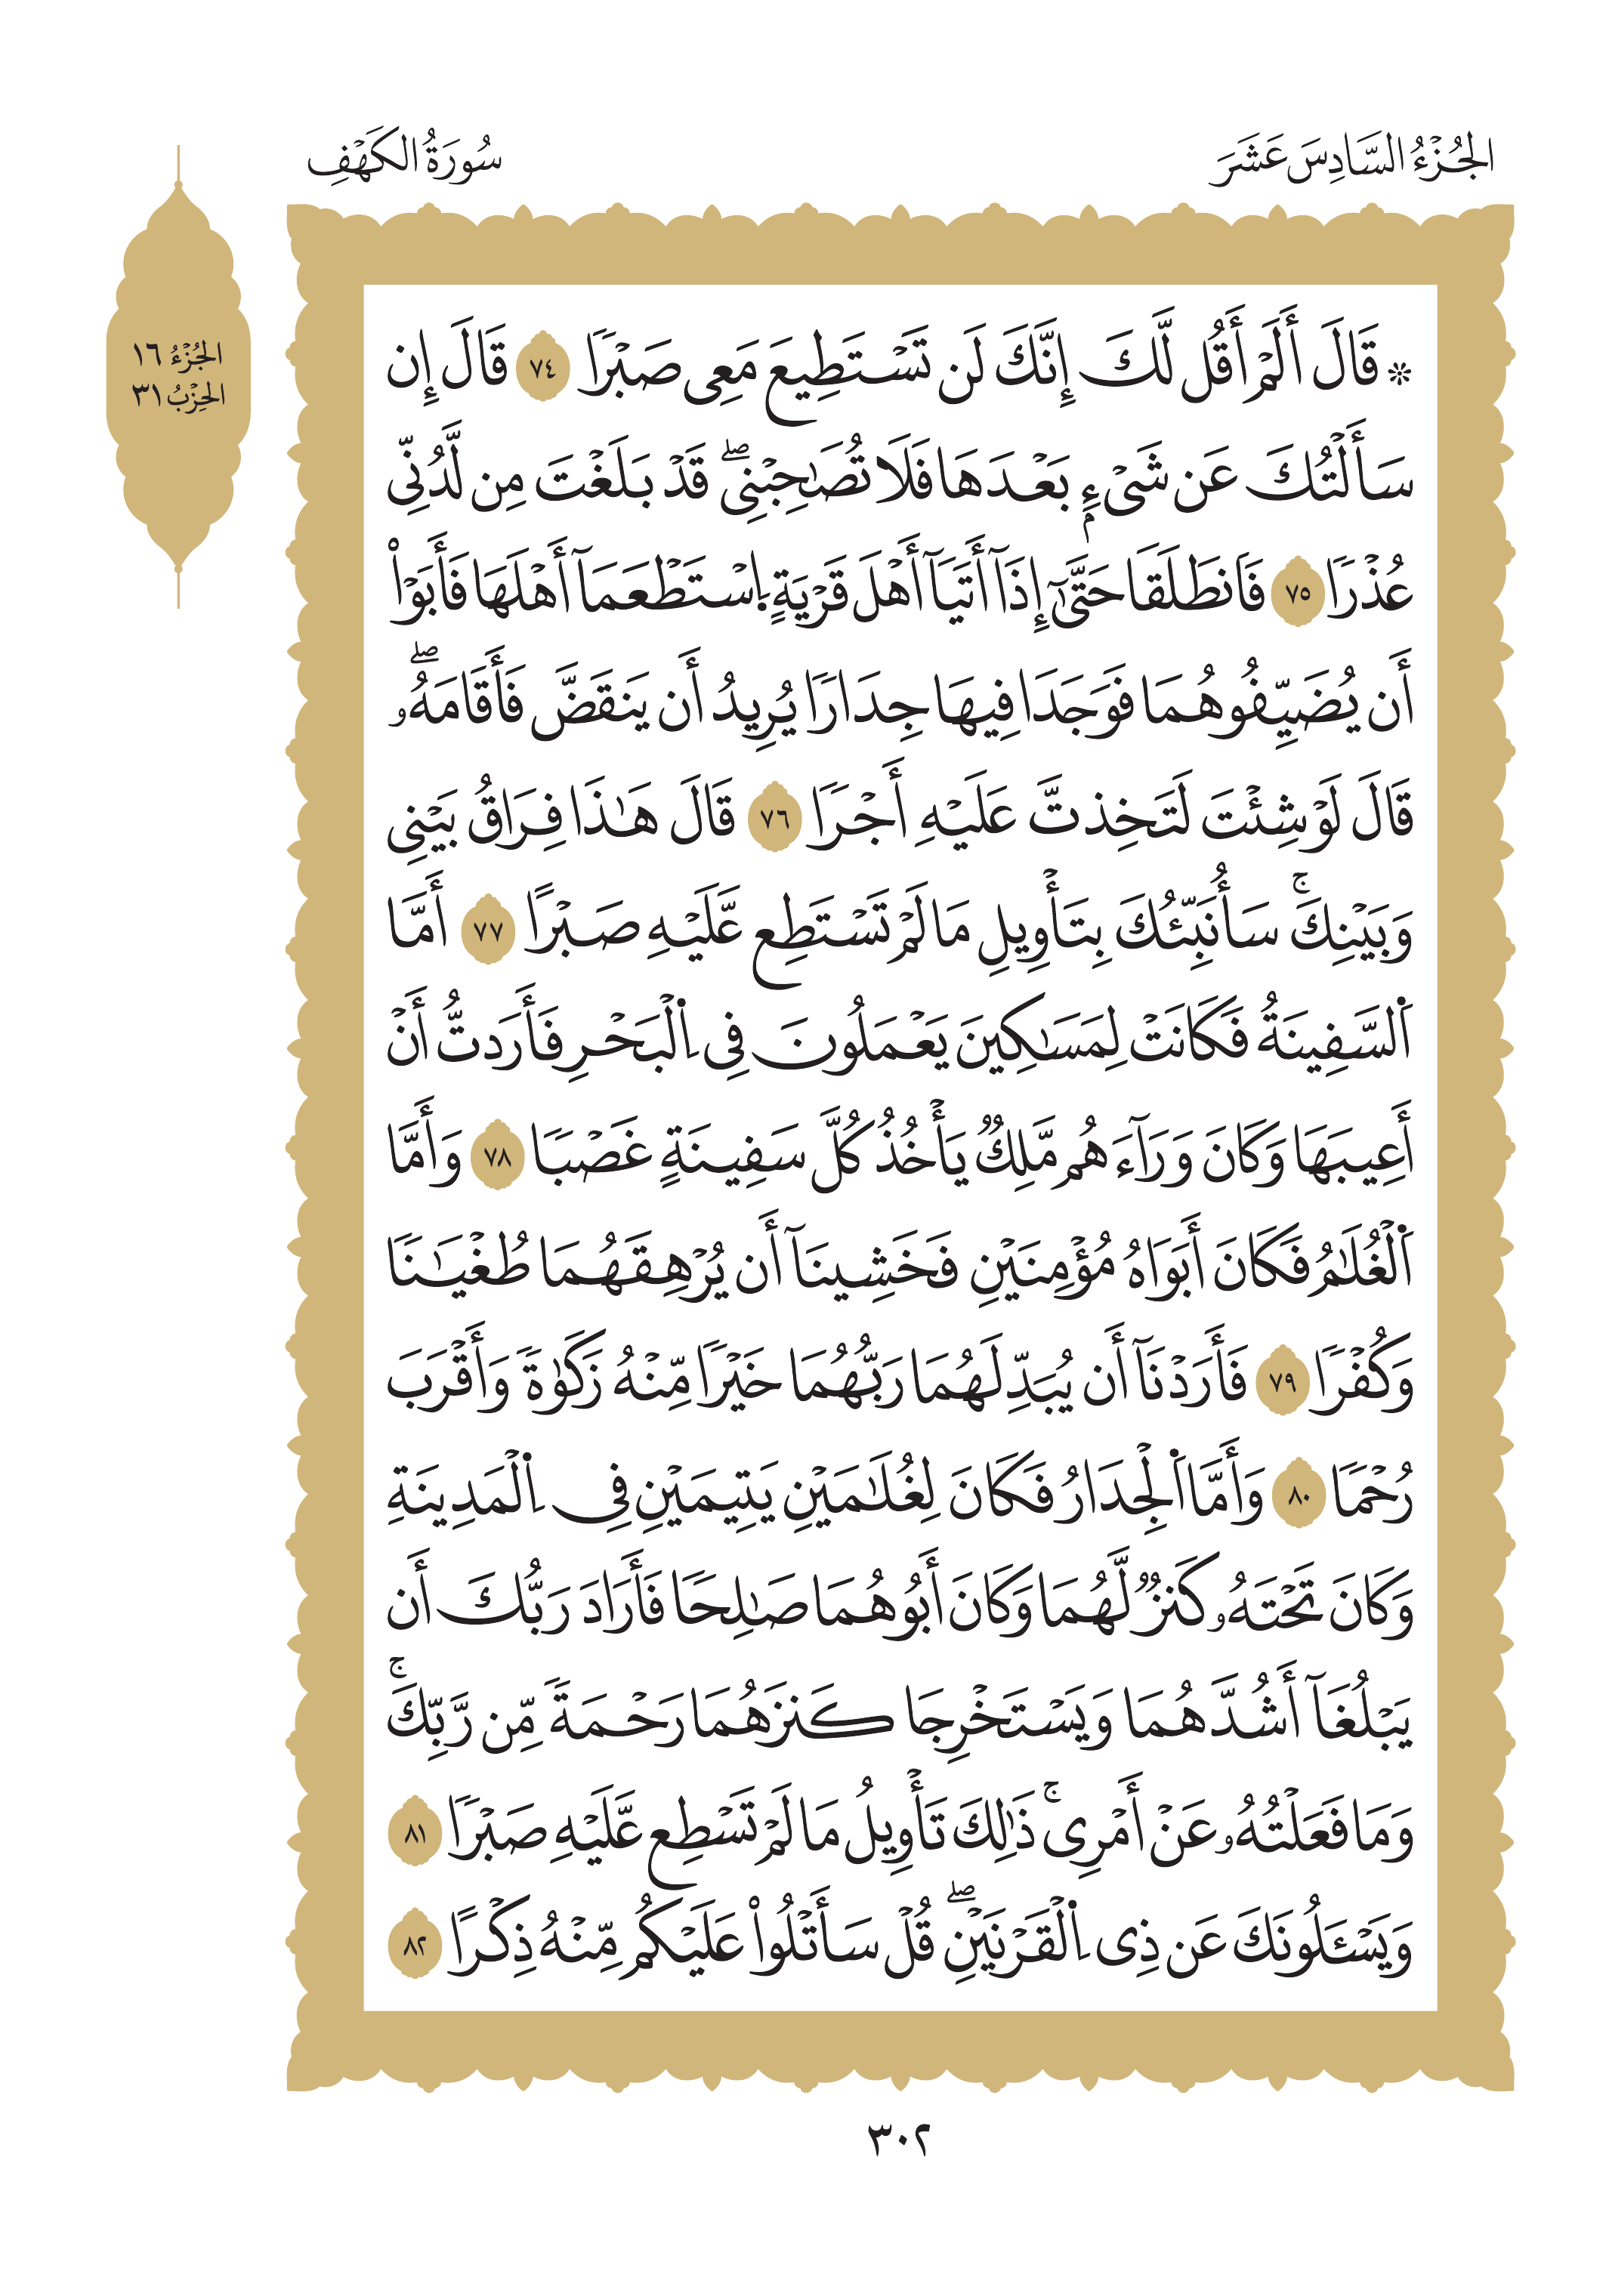 الجُزْءُ السَّادِسَ عَشَرَ
سُورَةُ الكَهْفِ
الجُزْءُ ١٦
الحِزْبُ ٣١
۞ قَالَ أَلَمْ أَقُل لَّكَ إِنَّكَ لَن تَسْتَطِيعَ مَعِى صَبْرًا ٧٤ قَالَ إِن
سَأَلْتُكَ عَن شَىْءِۭ بَعْدَهَا فَلَا تُصَٰحِبْنِىۖ قَدْ بَلَغْتَ مِن لَّدُنِّى
عُذْرًا ٧٥ فَاَنطَلَقَا حَتَّىٰٓ إِذَآ أَتَيَآ أَهْلَ قَرْيَةٍ اِ۪سْتَطْعَمَآ أَهْلَهَا فَأَبَوْاْ
أَن يُضَيِّفُوهُمَا فَوَجَدَا فِيهَا جِدَارًا يُرِيدُ أَن يَنقَضَّ فَأَقَامَهُۥۖ
قَالَ لَوْ شِئْتَ لَتَخِذتَّ عَلَيْهِ أَجْرًا ٧٦ قَالَ هَٰذَا فِرَاقُ بَيْنِى
وَبَيْنِكَۚ سَأُنَبِّئُكَ بِتَأْوِيلِ مَا لَمْ تَسْتَطِع عَّلَيْهِ صَبْرًا ٧٧ أَمَّا
اَ۬لسَّفِينَةُ فَكَانَتْ لِمَسَٰكِينَ يَعْمَلُونَ فِى اِ۬لْبَحْرِ فَأَرَدتُّ أَنْ
أَعِيبَهَا وَكَانَ وَرَآءَهُم مَّلِكٌ يَأْخُذُ كُلَّ سَفِينَةٍ غَصْبًا ٧٨ وَأَمَّا
اَ۬لْغُلَٰمُ فَكَانَ أَبَوَاهُ مُؤْمِنَيْنِ فَخَشِينَآ أَن يُرْهِقَهُمَا طُغْيَٰنًا
وَكُفْرًا ٧٩ فَأَرَدْنَآ أَن يُبَدِّلَهُمَا رَبُّهُمَا خَيْرًا مِّنْهُ زَكَوٰةً وَأَقْرَبَ
رُحْمًا ٨٠ وَأَمَّا اَ۬لْجِدَارُ فَكَانَ لِغُلَٰمَيْنِ يَتِيمَيْنِ فِى اِ۬لْمَدِينَةِ
وَكَانَ تَحْتَهُۥ كَنزٌ لَّهُمَا وَكَانَ أَبُوهُمَا صَٰلِحًا فَأَرَادَ رَبُّكَ أَن
يَبْلُغَآ أَشُدَّهُمَا وَيَسْتَخْرِجَا كَنزَهُمَا رَحْمَةً مِّن رَّبِّكَۚ
وَمَا فَعَلْتُهُۥ عَنْ أَمْرِىۚ ذَٰلِكَ تَأْوِيلُ مَا لَمْ تَسْطِع عَّلَيْهِ صَبْرًا ٨١
وَيَسْـَٔلُونَكَ عَن ذِى اِ۬لْقَرْنَيْنِۖ قُلْ سَأَتْلُواْ عَلَيْكُم مِّنْهُ ذِكْرًا ٨٢
٣٠٢